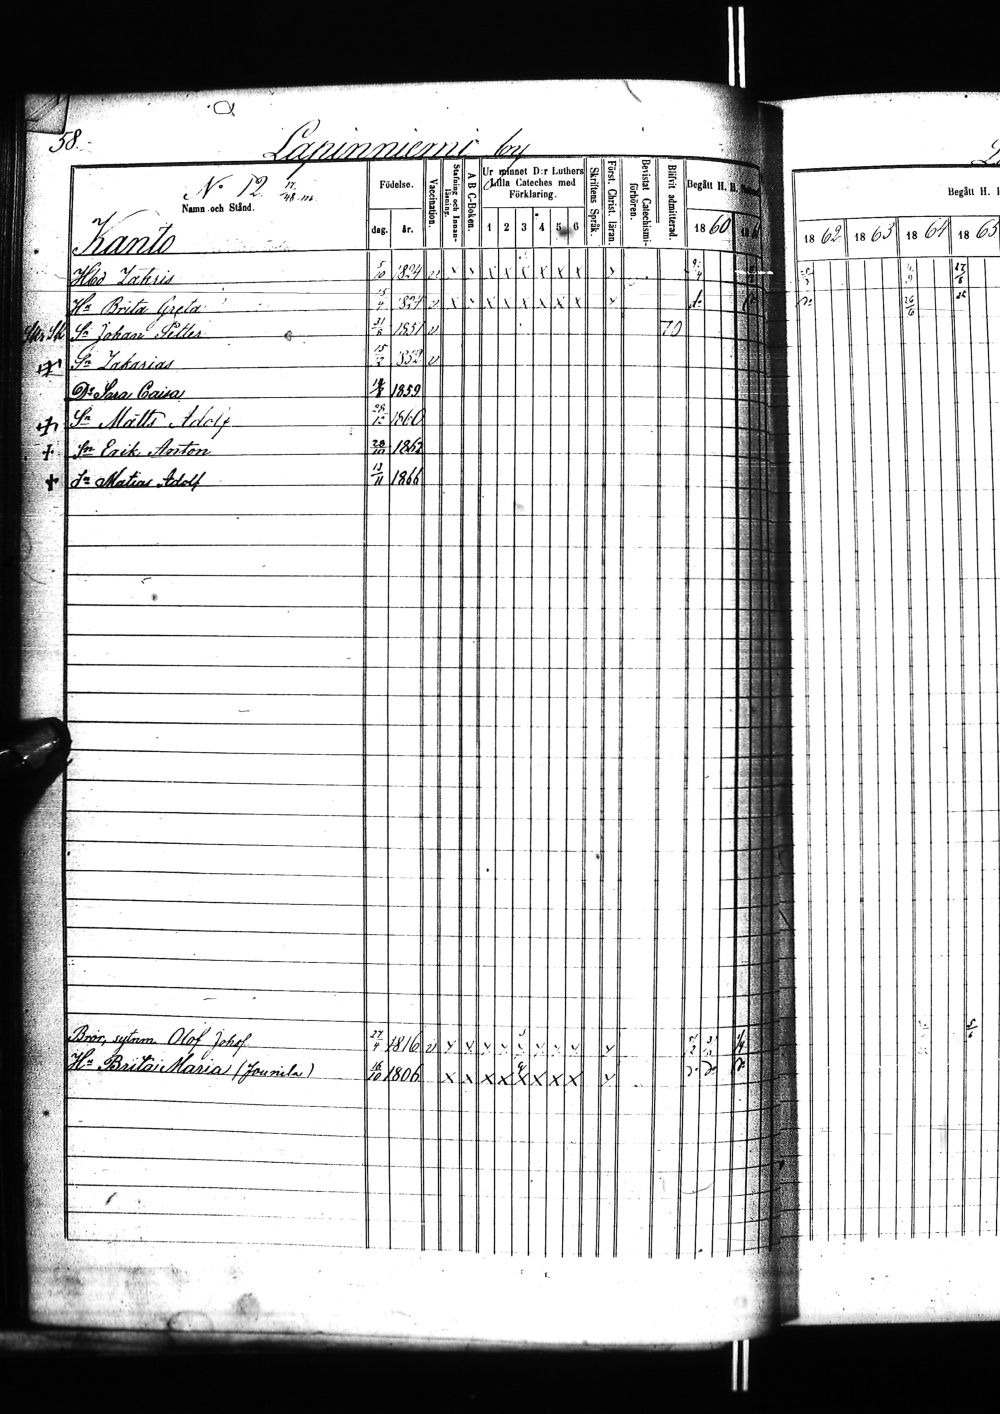 58.
Lapinniemi by
No 12. 17/48 m.
Namn och Stånd.
Kanto
Födelse.
dag. år.
Vaccination.
Stafning och Innanläsning.
A B C-Boken.
Ur minnet D:r Luthers
Lilla Cateches med
Förklaring.
1 2 3 4 5 6
Skriftens Språk.
Först. Christ. läran.
Bevistat Catechismiförhören.
Blifvit admitterad.
Begått H. H.
1860
Begått H.
1862 1863 1864 1865
Hbd Zakris 5/10 1824 v x x x x x x x x
Hu Brita Greta 1824 v x x x x x x x x
Sn Johan Petter 31/8 1851 v 70
Sn Zakarias 15/2 1852 v
Dr Sara Caisa 1859
Sn Matts Adolf 1860
+ Sn Erik Anton 28/10 1862
+ Sn Matias Adolf 13/11 1866
Bror, sytnm. Olof Johsf 27/4 1816 v
Hu Brita Maria (Jounila) 16/10 1806 x x x x x x x x